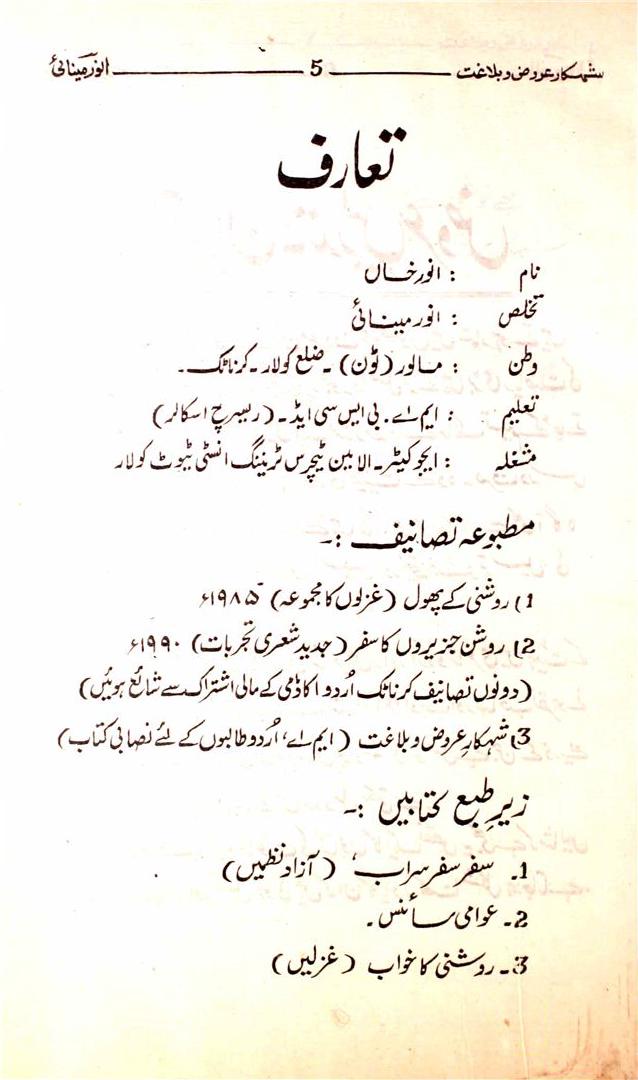 شہکار عروض و بلاغت 5 انور مینائی
تعارف
نام : انور خاں
تخلص : انور مینائی
وطن : مالور (ٹون) ۔ ضلع کولار ۔ کرناٹک ۔
تعلیم : ایم اے ۔ بی ایس سی ایڈ ۔ (ریسرچ اسکالر)
مشغلہ : ایجوکیٹر ۔ الامین ٹیچرس ٹریننگ انسٹی ٹیوٹ کولار
مطبوعہ تصانیف :۔
1) روشنی کے پھول (غزلوں کا مجموعہ) ۱۹۸۵ء
2) روشن جزیروں کا سفر (جدید شعری تجربات) ۱۹۹۰ء
(دونوں تصانیف کرناٹک اُردو اکاڈمی کے مالی اشتراک سے شائع ہوئیں)
3) شہکارِ عروض و بلاغت (ایم اے، اُردو طالبوں کے لئے نصابی کتاب)
زیرِ طبع کتابیں :۔
1۔ سفر سفر سراب، (آزاد نظمیں)
2۔ عوامی سائنس ۔
3۔ روشنی کا خواب (غزلیں)